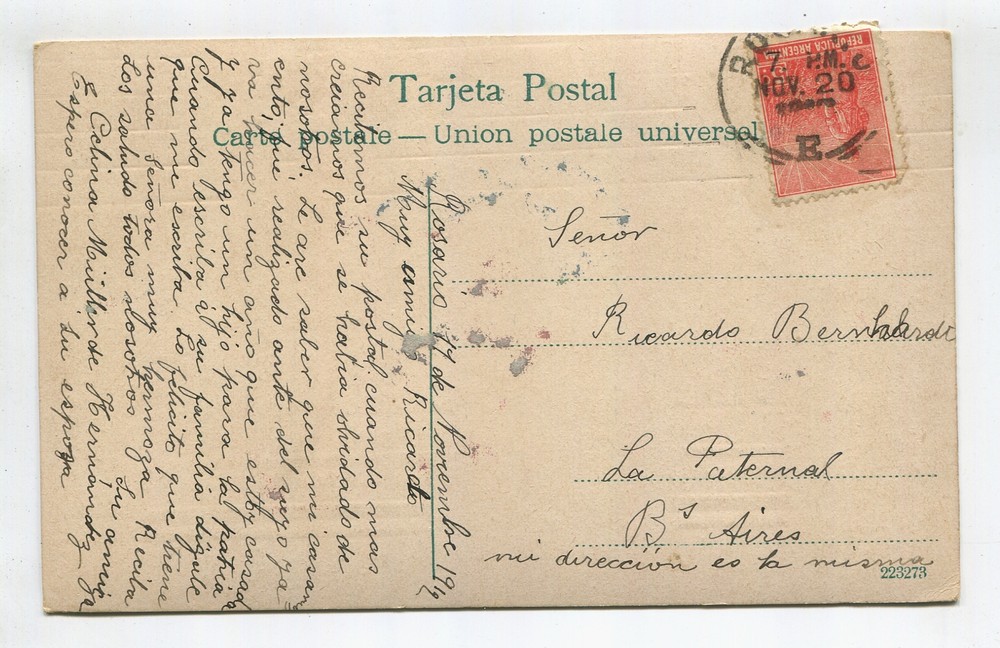 Tarjeta Postal
Carte postale — Union postale universel
REPUBLICA ARGENTINA
7. P.M.
NOV. 20
E
Señor
Ricardo Bernhardt
La Paternal
Bs Aires
mi dirección es la misma
223273
Rosario 14 de Novembre 19
Muy amigo Ricardo
Recibimos su postal cuando mas
creiamos que se habia olvidado de
nosotros. Le are saber que mi casam
ento, fué realizado ante del suyo ya
va hacer un año que estoy casada
y ya tengo un hijo para la patria
Cuando escriba á su familia digale
que me escriba. Lo felicito que tiene
una Señora muy hermoza Reciba
Los saludo todos nosotros Su amiga
Cochina de Hernández
Espero conocer á su espoza